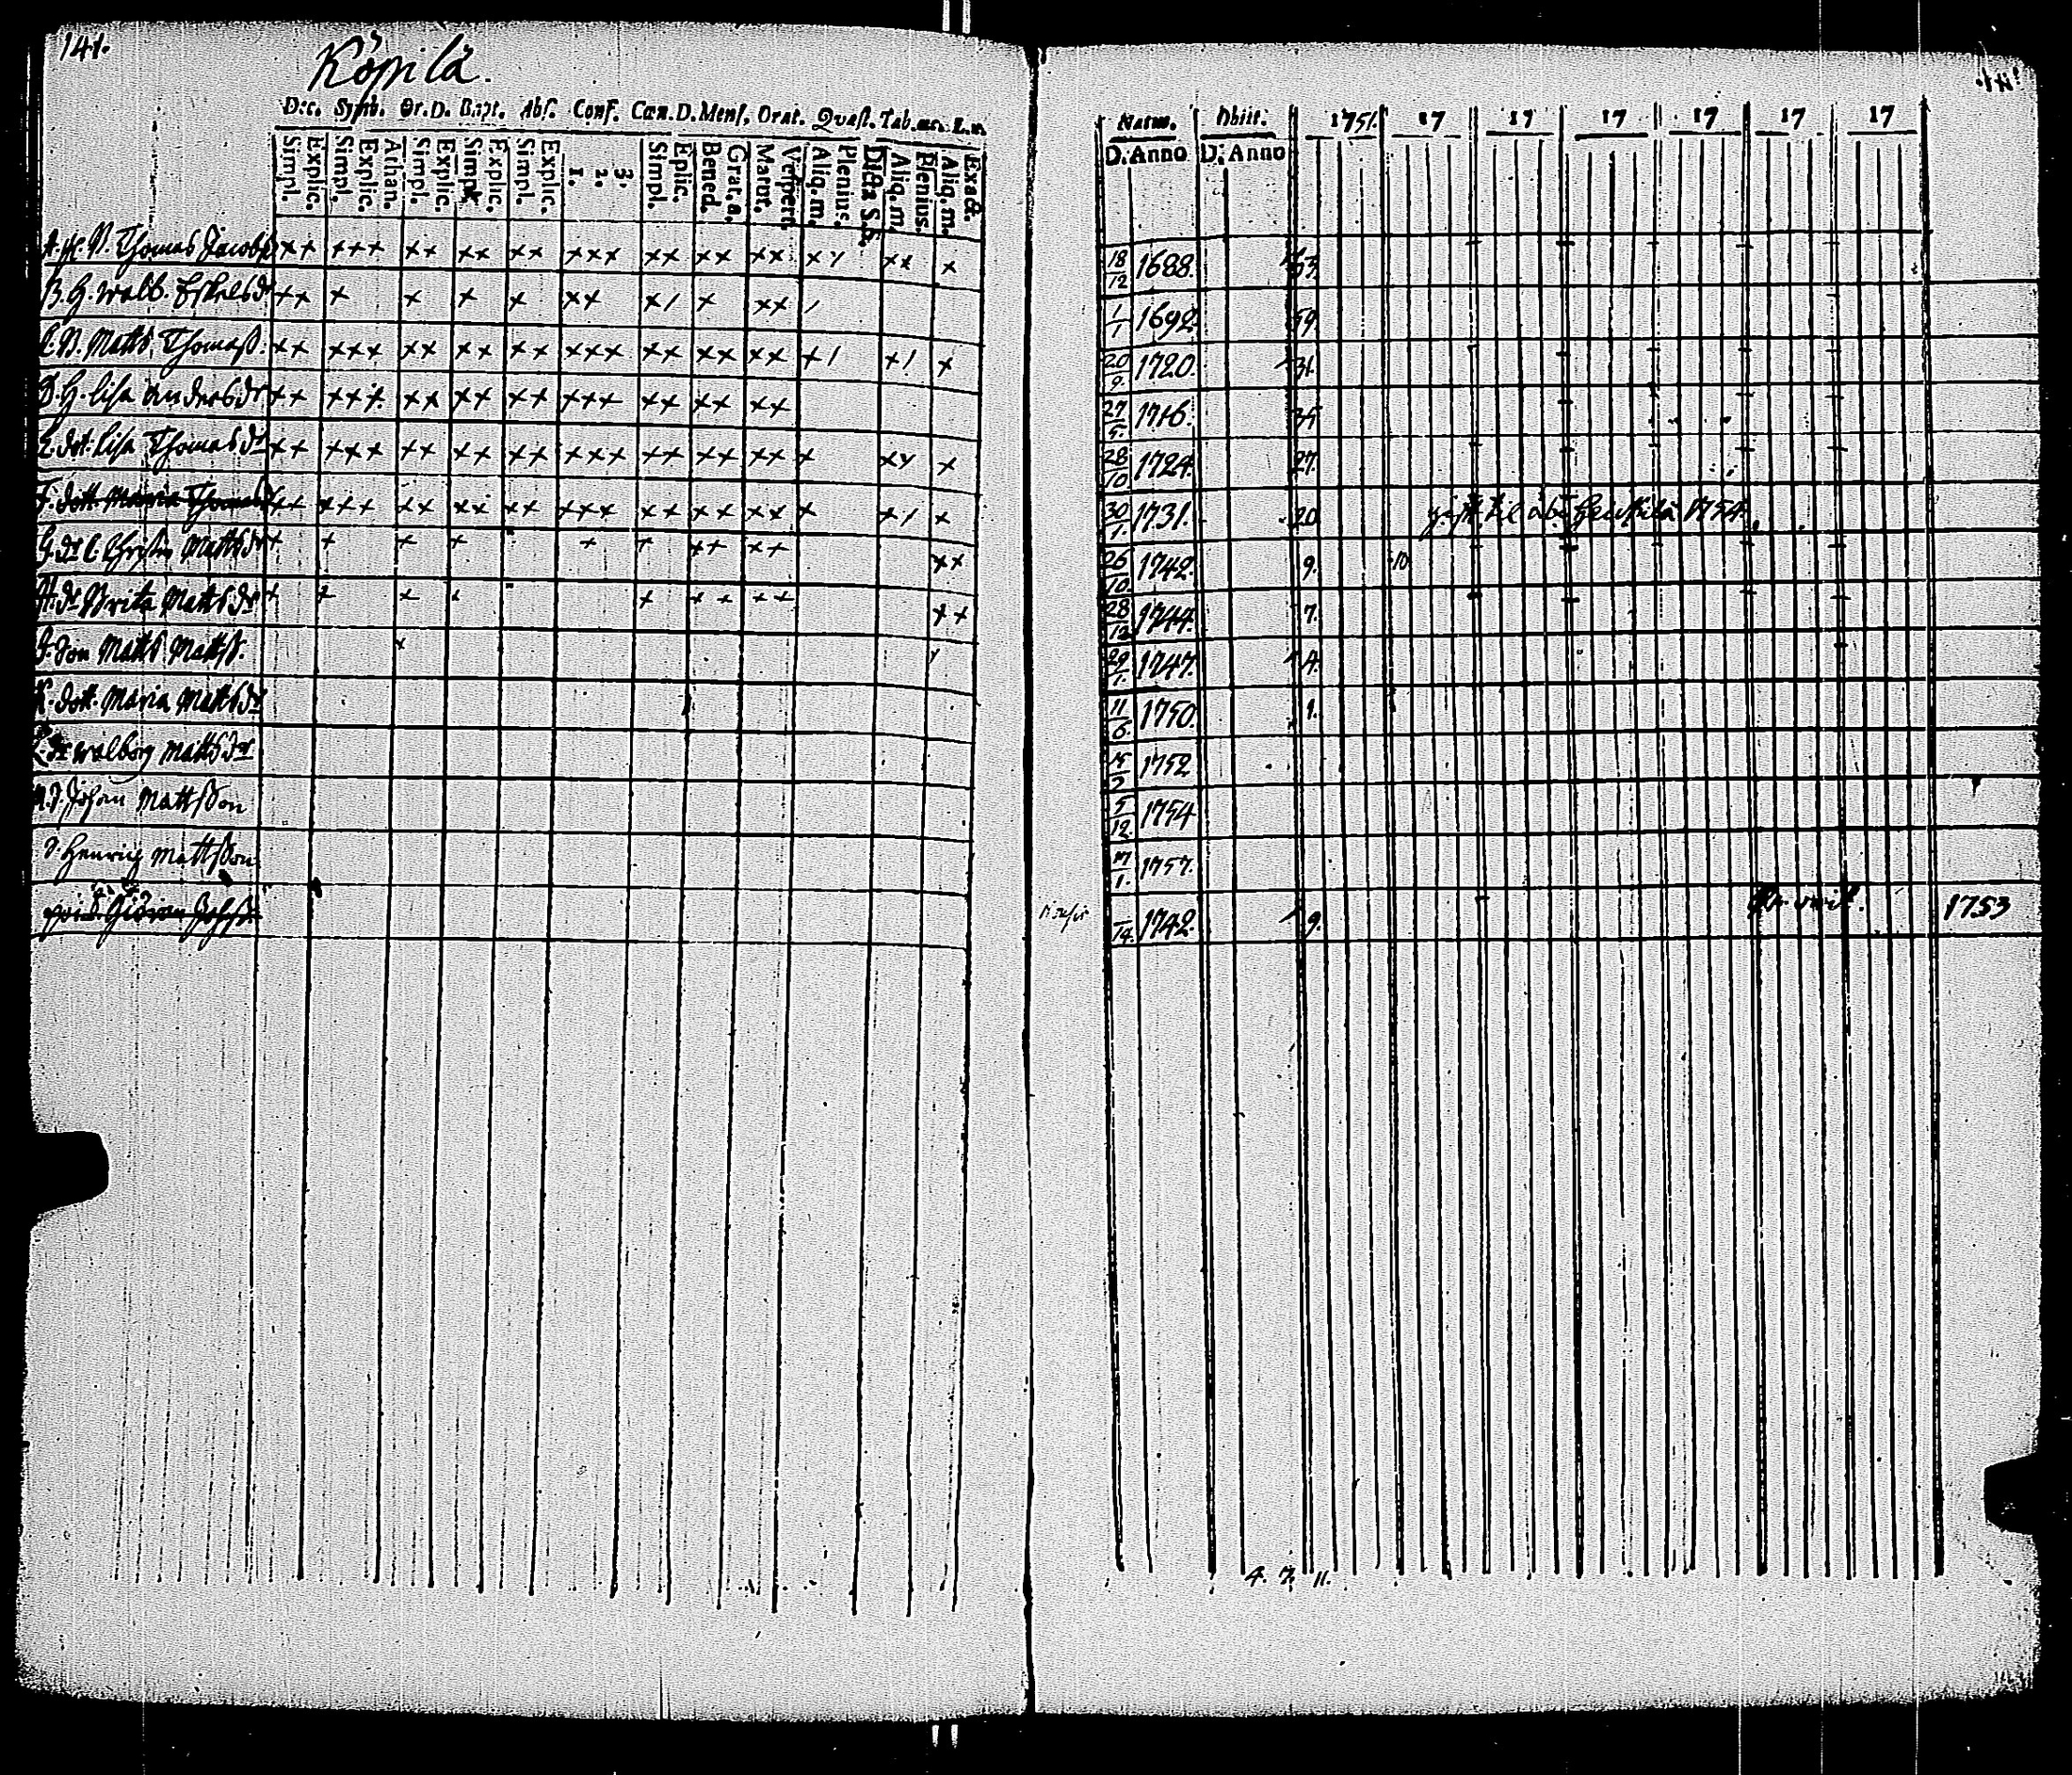 141.
Köpilä.
Dec. Symb. Or. D. Bapt. Abs. Conf. Cœn. D. Mens. Orat. Quæst. Tab.
Simpl. Explic. Simpl. Explic. Athan. Simpl. Explic. Simpl. Explic. Simpl. Explic. 1. 2. 3. Simpl. Eplic. Bened. Grat. a. Matut. Vespert. Aliq. m. Plenius. Dicta S. S. Aliq. m. Plenius. Aliq. m. Exact.
Thomas Jacobs
B. H. Walb. Eskelsdr
C. B. Matts Thomass.
D. H. Lisa Andersdr
E. dot. Lisa Thomasdr
F. dott. Maria Thomasdr
G. dr C. Christin Mattsdr
H. dr Brita Mattsdr
J. Son Matts Mattss.
K. dott. Maria Mattsdr
L. dr Walborg Mattsdr
Johan Mattsson
S. Henrich Mattsson
Natus. Obiit. 1751. 17 17 17 17 17 17
D. Anno D. Anno
18/12 1688. 63.
1/1 1692. 59.
20/9. 1720. 31.
27/5. 1716. 35.
28/10 1724. 27.
30/1. 1731. 20. gift til 1754.
26/10. 1742. 9. 10
28/12 1744. 7.
29/1. 1747. 4.
11/6. 1750. 1.
1752
5/12. 1754
17/1. 1757.
14. 1742. 9. 1753
4. 7. 11.